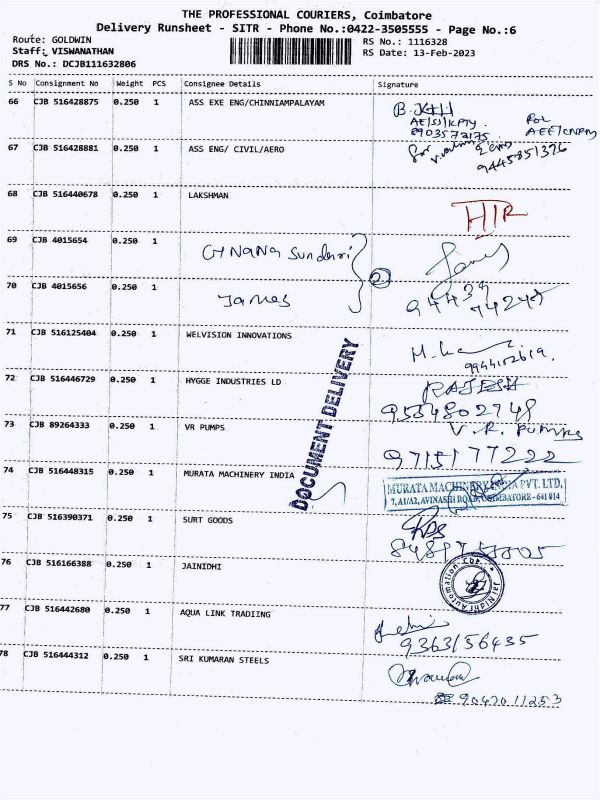 THE PROFESSIONAL COURIERS, Coimbatore
Delivery Runsheet - SITR - Phone No.:0422-3505555 - Page No.:6
Route: GOLDWIN RS No.: 1116328
Staff: VISWANATHAN RS Date: 13-Feb-2023
DRS No.: DCJB111632806
S No Consignment No Weight PCS Consignee Details Signature
66 CJB 516428875 0.250 1 ASS EXE ENG/CHINNIAMPALAYAM
AE/SS/KPTY For
8903573175 AEE/CNPM
67 CJB 516428881 0.250 1 ASS ENG/ CIVIL/AERO
for
9445851396
68 CJB 516440678 0.250 1 LAKSHMAN
HIR
69 CJB 4015654 0.250 1 GYNANA Sundari
2
70 CJB 4015656 0.250 1 James
94439 74247
71 CJB 516125404 0.250 1 WELVISION INNOVATIONS
9944102619
72 CJB 516446729 0.250 1 HYGGE INDUSTRIES LD RAJESH
9554802748
73 CJB 89264333 0.250 1 VR PUMPS V.R. Pumps
9715177222
DOCUMENT DELIVERY
74 CJB 516448315 0.250 1 MURATA MACHINERY INDIA MURATA MACHINERY INDIA PVT. LTD.
7, A1/A2, AVINASHI ROAD, COIMBATORE - 641 014
75 CJB 516390371 0.250 1 SURT GOODS
76 CJB 516166388 0.250 1 JAINIDHI
Jai Nidhi Automation Cbe.
77 CJB 516442680 0.250 1 AQUA LINK TRADIING
9363156435
78 CJB 516444312 0.250 1 SRI KUMARAN STEELS
9047011253